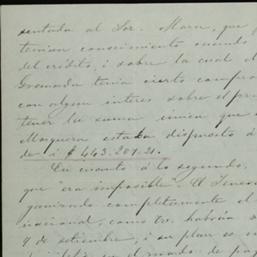 sentada al Sor. Mara, que
tenian conocimiento cuando
del crédito, i sobre la cual el
Granada tenia cierto compro
con algun interes sobre el pr
tener la suma unica que
Mosquera estaba dispuesto á
de á $443.207.21.
En cuanto á lo segundo,
que "era imposible". El Tenedor
completamente el
nacional, como tu habrás
9 de setiembre, i su plan es
el modo de pag